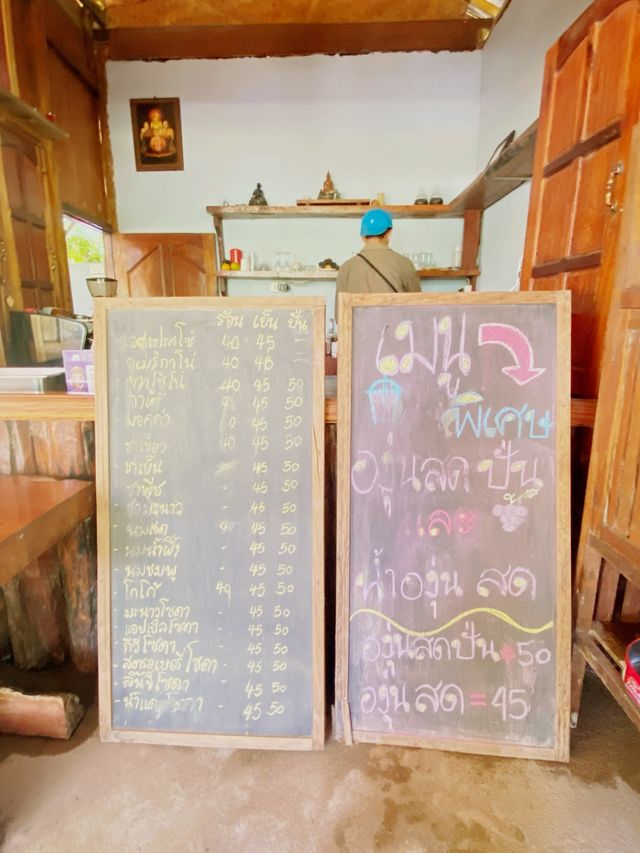 ร้อน เย็น ปั่น
เอสเปรสโซ่ 40 45 -
อเมริกาโน่ 40 45 -
คาปูชิโน่ 40 45 50
ลาเต้ 45 50
มอคค่า 45 50
ชาเขียว 40 45 50
ชาเย็น - 45 50
ชาพีช - 45 50
ชามะนาว - 45 50
- นมสด 40 45 50
- นมน้ำผึ้ง - 45 50
- นมชมพู - 45 50
- โกโก้ 40 45 50
- มะนาวโซดา - 45 50
- แอปเปิ้ลโซดา - 45 50
- กีวี่โซดา - 45 50
- สตรอเบอรี่โซดา - 45 50
- ลิ้นจี่โซดา - 45 50
- น้ำแดงโซดา - 45 50
เมนู
พิเศษ
องุ่นสด ปั่น
และ
น้ำองุ่น สด
องุ่นสดปั่น = 50
องุ่นสด = 45